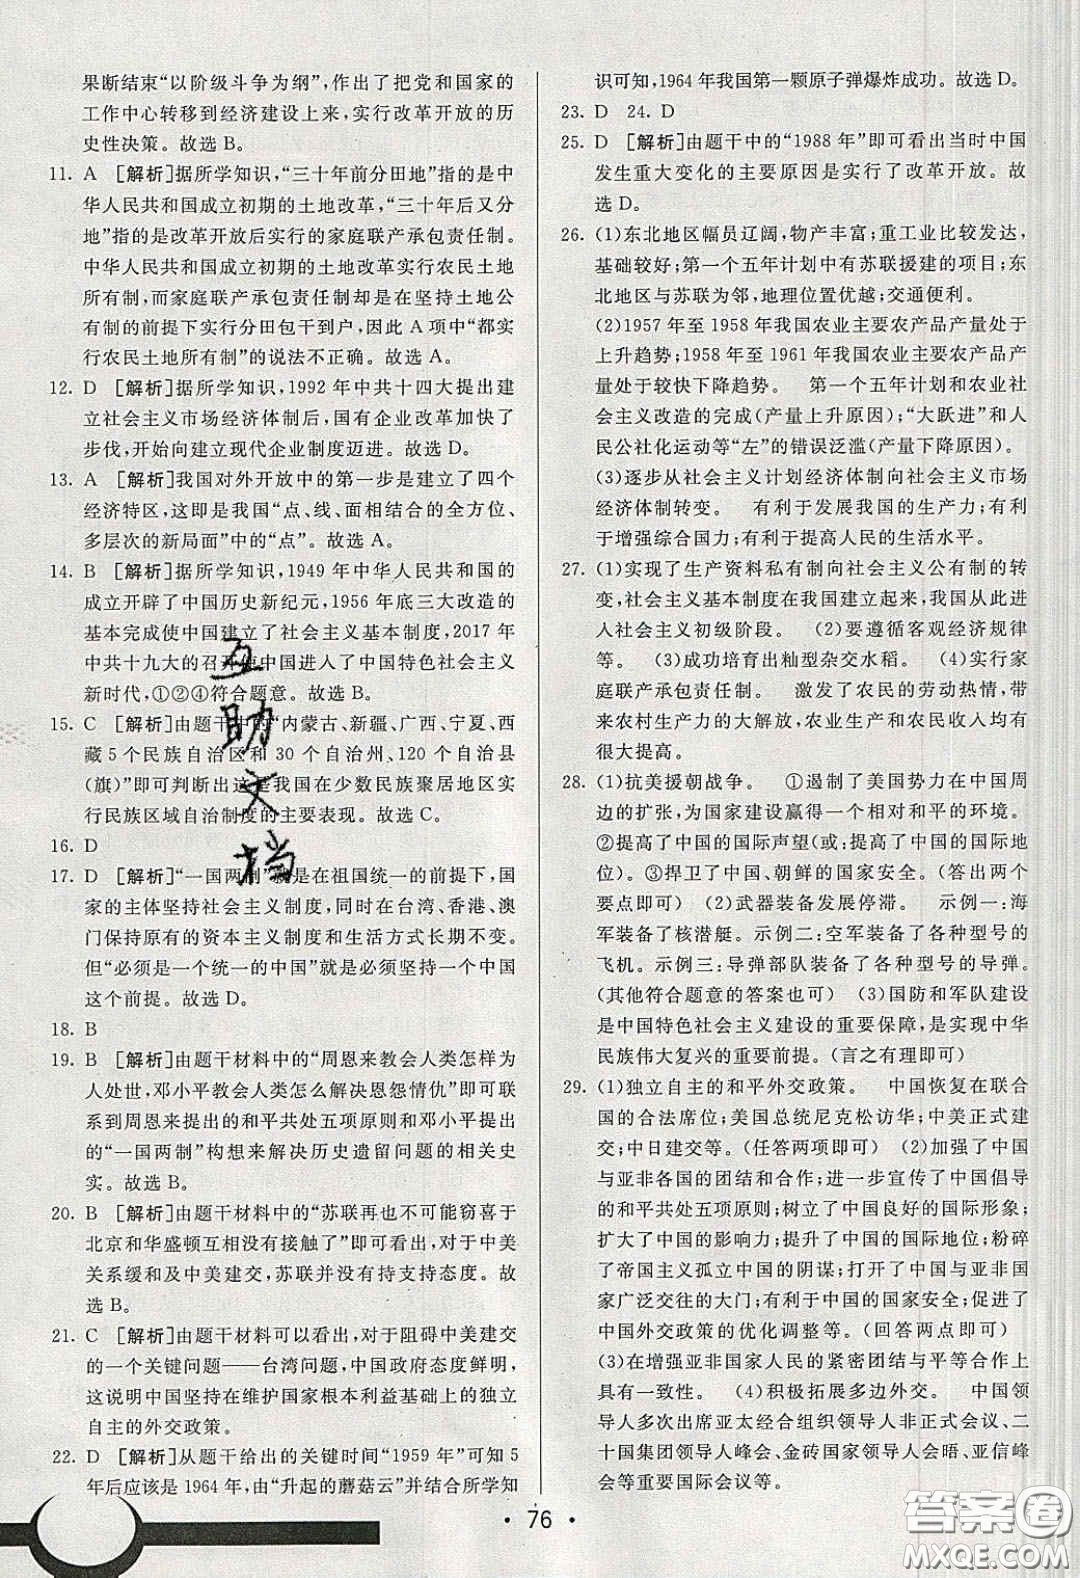 果断结束“以阶级斗争为纲”，作出了把党和国家的
工作中心转移到经济建设上来，实行改革开放的历
史性决策。故选 B。
11. A [解析]据所学知识，“三十年前分田地”指的是中
华人民共和国成立初期的土地改革，“三十年后又分
地”指的是改革开放后实行的家庭联产承包责任制。
中华人民共和国成立初期的土地改革是实行农民土地
所有制，而家庭联产承包责任制却是在坚持土地公
有制的前提下实行分田包干到户，因此 A 项中“都实
行农民土地所有制”的说法不正确。故选 A。
12. D [解析]据所学知识，1992 年中共十四大提出建
立社会主义市场经济体制后，国有企业改革加快了
步伐，开始向建立现代企业制度迈进。故选 D。
13. A [解析]我国对外开放中的第一步是建立了四个
经济特区，这即是我国“点、线、面相结合的全方位、
多层次的新局面”中的“点”。故选 A。
14. B [解析]据所学知识，1949 年中华人民共和国的
成立开辟了中国历史新纪元，1956 年底三大改造的
基本完成使中国建立了社会主义基本制度，2017 年
中共十九大的召开使中国进入了中国特色社会主义
新时代，①②④符合题意。故选 B。
15. C [解析]由题干中的“内蒙古、新疆、广西、宁夏、西
藏 5 个民族自治区和 30 个自治州、120 个自治县
(旗)”即可判断出这是我国在少数民族聚居地区实
行民族区域自治制度的主要表现。故选 C。
16. D
17. D [解析]“一国两制”就是在祖国统一的前提下，国
家的主体坚持社会主义制度，同时在台湾、香港、澳
门保持原有的资本主义制度和生活方式长期不变。
但“必须是一个统一的中国”就是坚持一个中国
这个前提。故选 D。
18. B
19. B [解析]由题干材料中的“周恩来教会人类怎样为
人处世，邓小平教会人类怎么解决恩怨情仇”即可联
系到周恩来提出的和平共处五项原则和邓小平提出
的“一国两制”构想来解决历史遗留问题的相关史
实。故选 B。
20. B [解析]由题干材料中的“苏联再也不可能窃喜于
北京和华盛顿互相没有接触了”即可看出，对于中美
关系缓和及中美建交，苏联并没有持支持态度。故
选 B。
21. C [解析]由题干材料可以看出，对于阻碍中美建交
的一个关键问题——台湾问题，中国政府态度鲜明，
这说明中国坚持在维护国家根本利益基础上的独立
自主的外交政策。
22. D [解析]从题干给出的关键时间“1959 年”可知 5
年后应该是 1964 年，由“升起的蘑菇云”并结合所学知
识可知，1964 年我国第一颗原子弹爆炸成功。故选 D。
23. D 24. D
25. D [解析]由题干中的“1988 年”即可看出当时中国
发生重大变化的主要原因是实行了改革开放。故
选 D。
26. (1)东北地区幅员辽阔，物产丰富；重工业比较发达，
基础较好；第一个五年计划中有苏联援建的项目；东
北地区与苏联为邻，地理位置优越；交通便利。
(2)1957 年至 1958 年我国农业主要农产品产量处于
上升趋势；1958 年至 1961 年我国农业主要农产品产
量处于较快下降趋势。 第一个五年计划和农业社
会主义改造的完成(产量上升原因)；“大跃进”和人
民公社化运动等“左”的错误泛滥(产量下降原因)。
(3)逐步从社会主义计划经济体制向社会主义市场
经济体制转变。 有利于发展我国的生产力；有利
于增强综合国力；有利于提高人民的生活水平。
27. (1)实现了生产资料私有制向社会主义公有制的转
变，社会主义基本制度在我国建立起来，我国从此进
入社会主义初级阶段。 (2)要遵循客观经济规律
等。 (3)成功培育出籼型杂交水稻。 (4)实行家
庭联产承包责任制。 激发了农民的劳动热情，带
来农村生产力的大解放，农业生产和农民收入均有
很大提高。
28. (1)抗美援朝战争。 ①遏制了美国势力在中国周
边的扩张，为国家建设赢得一个相对和平的环境。
②提高了中国的国际声望(或提高了中国的国际地
位)。③捍卫了中国、朝鲜的国家安全。(答出两个
要点即可) (2)武器装备发展停滞。 示例一：海
军装备了核潜艇。示例二：空军装备了各种型号的
飞机。示例三：导弹部队装备了各种型号的导弹。
(其他符合题意的答案也可) (3)国防和军队建设
是中国特色社会主义建设的重要保障，是实现中华
民族伟大复兴的重要前提。(言之有理即可)
29. (1)独立自主的和平外交政策。 中国恢复在联合
国的合法席位；美国总统尼克松访华；中美正式建
交；中日建交等。(任答两项即可) (2)加强了中国
与亚非各国的团结和合作；进一步宣传了中国倡导
的和平共处五项原则；树立了中国良好的国际形象；
扩大了中国的影响力；提升了中国的国际地位；粉碎
了帝国主义孤立中国的阴谋；打开了中国与亚非国
家广泛交往的大门；有利于中国的国家安全；促进了
中国外交政策的优化调整等。(回答两点即可)
(3)在增强亚非国家人民的紧密团结与平等合作上
具有一致性。 (4)积极拓展多边外交。 中国领
导人多次出席亚太经合组织领导人非正式会议、二
十国集团领导人峰会、金砖国家领导人会晤、亚信峰
会等重要国际会议等。
互助文档
· 76 ·
答案圈
MXQE.COM